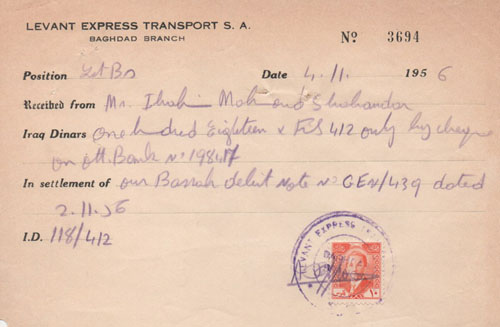 LEVANT EXPRESS TRANSPORT S. A.
BAGHDAD BRANCH
No 3694
Position Let Bs Date 4.11. 1956
Received from Mr. Ibrahim Mahmoud Shahandar
Iraq Dinars One hundred Eighteen & FLS 412 only by cheque
on Ott. Bank No 198417
In settlement of our Basrah debit note No GEN/439 dated
2.11.56
I.D. 118/412
LEVANT EXPRESS